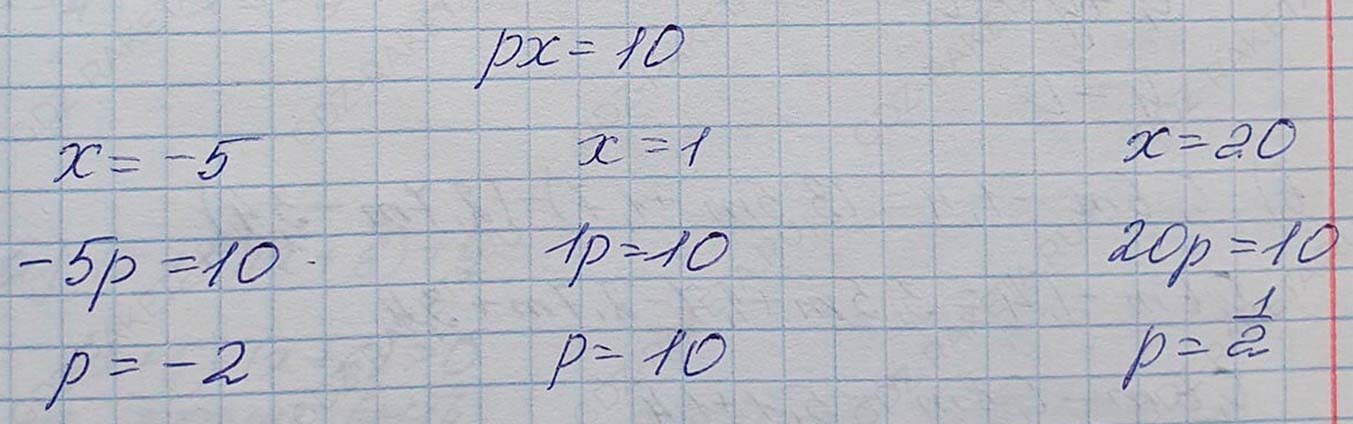 px = 10
x = -5 x = 1 x = 20
-5p = 10 1p = 10 20p = 10
p = -2 p = 10 p = 1/2